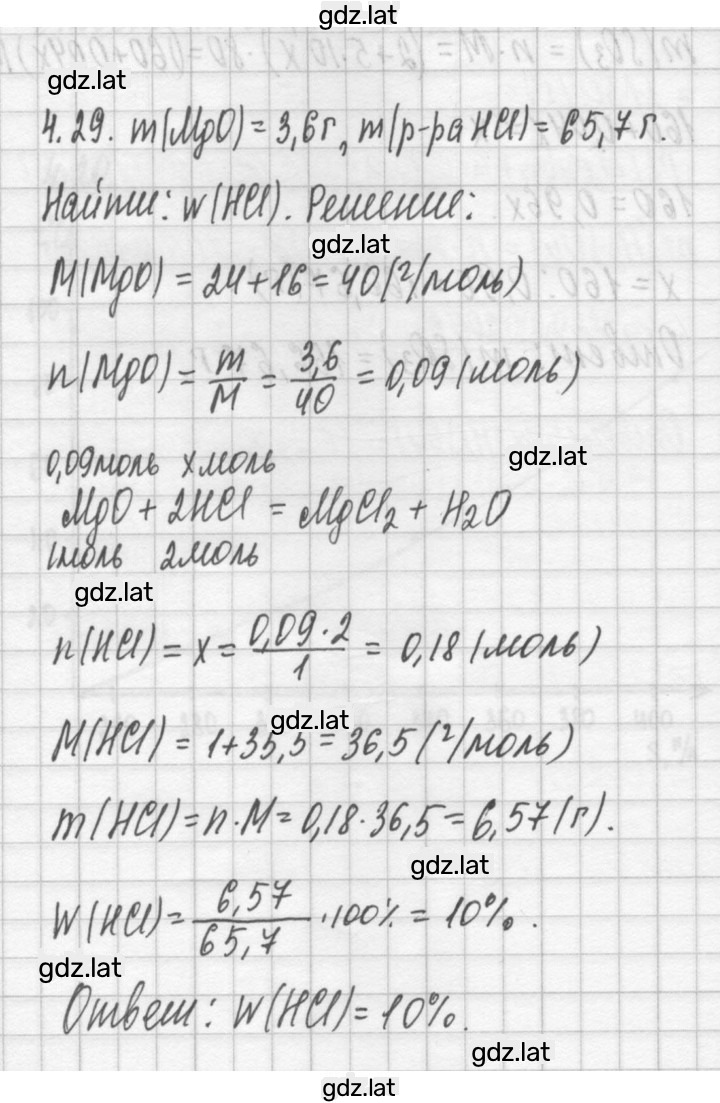 gdz.lat
gdz.lat
4.29. m(MgO) = 3,6 г, m(р-ра HCl) = 65,7 г.
Найти: w(HCl). Решение:
gdz.lat
M(MgO) = 24+16 = 40 (г/моль)
n(MgO) = m/M = 3,6/40 = 0,09 (моль)
gdz.lat
0,09 моль x моль
MgO + 2HCl = MgCl₂ + H₂O
1 моль 2 моль
gdz.lat
n(HCl) = x = 0,09·2/1 = 0,18 (моль)
gdz.lat
M(HCl) = 1+35,5 = 36,5 (г/моль)
m(HCl) = n·M = 0,18·36,5 = 6,57 (г).
gdz.lat
W(HCl) = 6,57/65,7 ·100% = 10%.
gdz.lat
Ответ: W(HCl) = 10%.
gdz.lat
gdz.lat